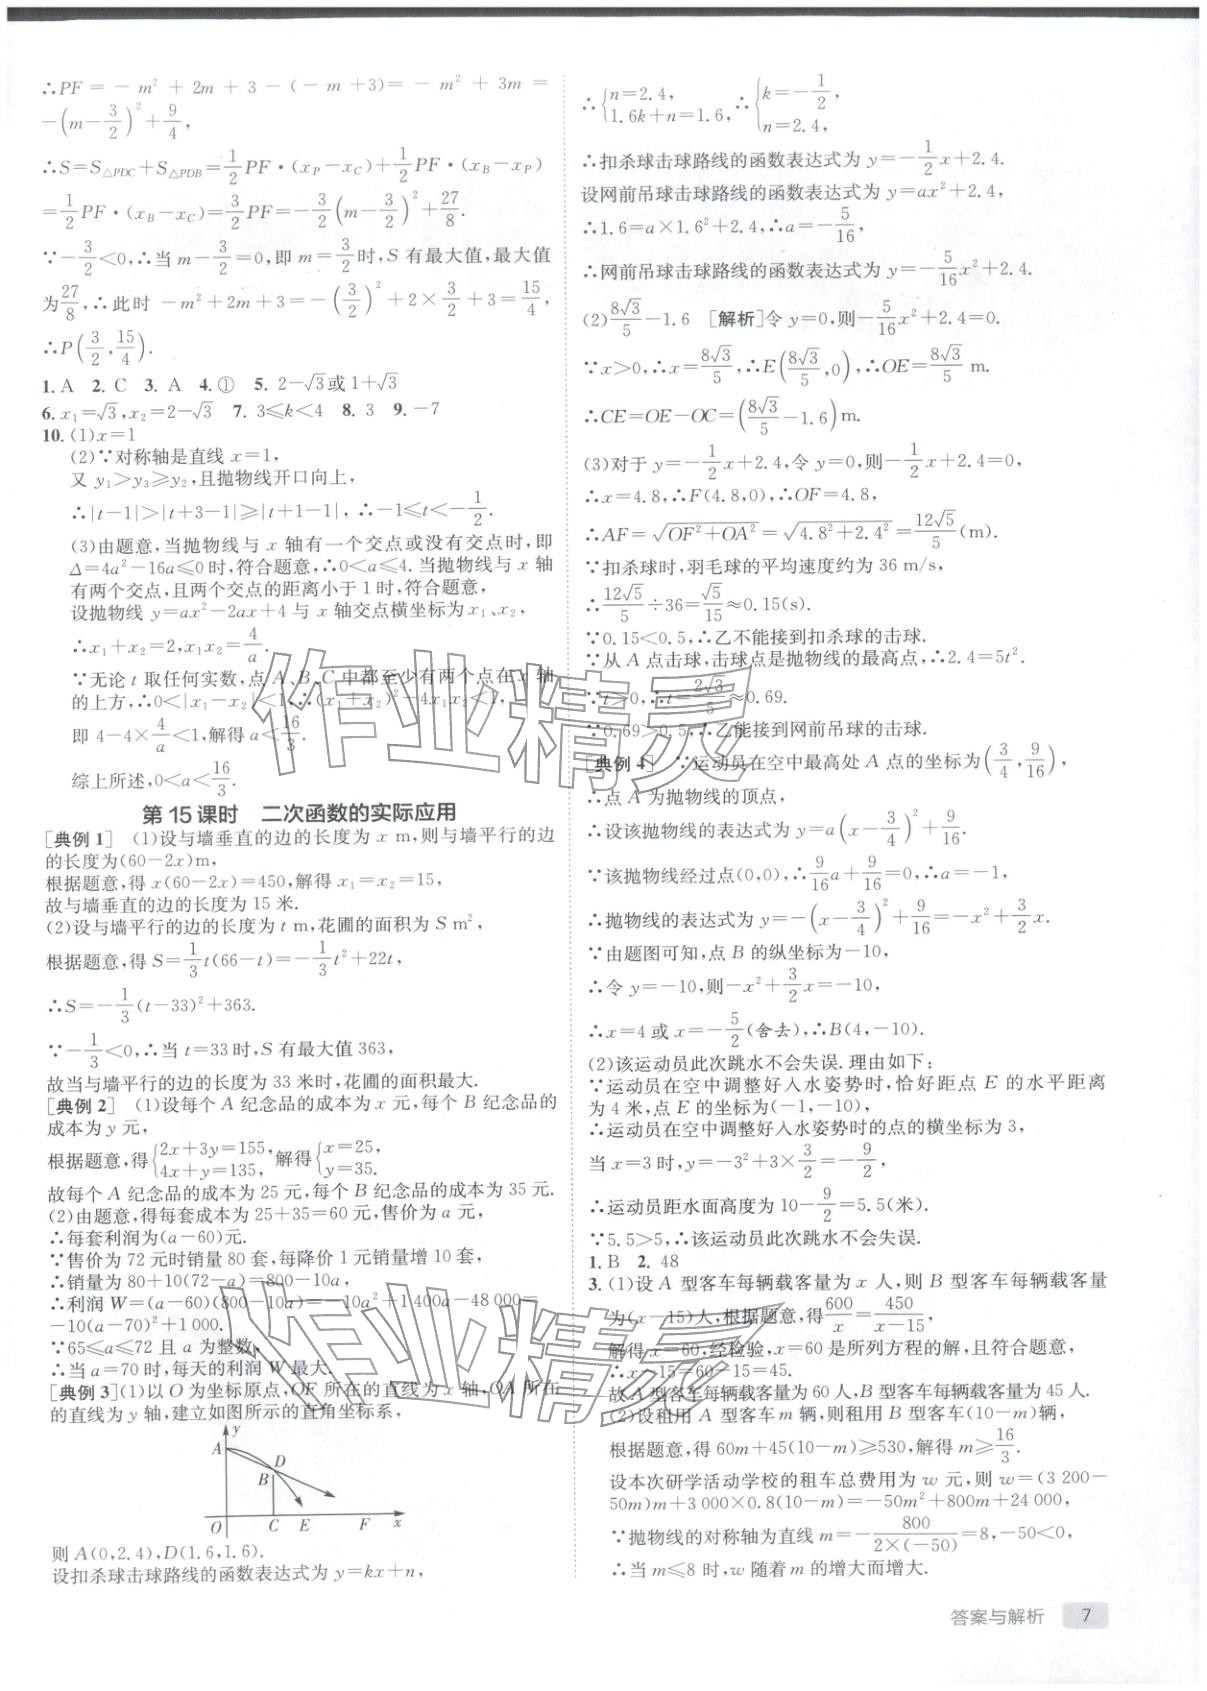 ∴PF=-m²+2m+3-(-m+3)=-m²+3m=
-(m-3/2)²+9/4,
∴S=S△PDC+S△PDB=1/2PF·(xP-xC)+1/2PF·(xB-xP)
=1/2PF·(xB-xC)=3/2PF=-3/2(m-3/2)²+27/8.
∵-3/2<0,∴当m-3/2=0,即m=3/2时,S有最大值,最大值
为27/8,∴此时-m²+2m+3=-(3/2)²+2×3/2+3=15/4,
∴P(3/2,15/4).
1. A 2. C 3. A 4. ① 5. 2-√3或1+√3
6. x₁=√3,x₂=2-√3 7. 3≤k<4 8. 3 9. -7
10. (1)x=1
(2)∵对称轴是直线x=1,
又y₁>y₃≥y₂,且抛物线开口向上,
∴|t-1|>|t+3-1|≥|t+1-1|, ∴-1≤t<-1/2.
(3)由题意,当抛物线与x轴有一个交点或没有交点时,即
Δ=4a²-16a≤0时,符合题意,∴0<a≤4. 当抛物线与x轴
有两个交点,且两个交点的距离小于1时,符合题意,
设抛物线y=ax²-2ax+4与x轴交点横坐标为x₁、x₂,
∴x₁+x₂=2,x₁x₂=4/a.
∵无论t取任何实数,点A、B、C中都至少有两个点在x轴
的上方,∴0<|x₁-x₂|<1,∴(x₁+x₂)²-4x₁x₂<1,
即4-4×4/a<1,解得a<16/3.
综上所述,0<a<16/3.
第15课时 二次函数的实际应用
[典例1] (1)设与墙垂直的边的长度为x m,则与墙平行的边
的长度为(60-2x)m,
根据题意,得x(60-2x)=450,解得x₁=x₂=15,
故与墙垂直的边的长度为15米.
(2)设与墙平行的边的长度为t m,花圃的面积为S m²,
根据题意,得S=1/3t(66-t)=-1/3t²+22t,
∴S=-1/3(t-33)²+363.
∵-1/3<0,∴当t=33时,S有最大值363,
故当与墙平行的边的长度为33米时,花圃的面积最大.
[典例2] (1)设每个A纪念品的成本为x元,每个B纪念品的
成本为y元,
根据题意,得{2x+3y=155, 4x+y=135, 解得{x=25, y=35.
故每个A纪念品的成本为25元,每个B纪念品的成本为35元.
(2)由题意,得每套成本为25+35=60元,售价为a元,
∴每套利润为(a-60)元.
∵售价为72元时销量80套,每降价1元销量增10套,
∴销量为80+10(72-a)=800-10a,
∴利润W=(a-60)(800-10a)=-10a²+1 400a-48 000=
-10(a-70)²+1 000.
∵65≤a≤72且a为整数,
∴当a=70时,每天的利润W最大.
[典例3](1)以O为坐标原点,OF所在的直线为x轴,OA所在
的直线为y轴,建立如图所示的直角坐标系,
y
A
D
B
O C E F x
则A(0,2.4),D(1.6,1.6).
设扣杀球击球路线的函数表达式为y=kx+n,
∴{n=2.4, 1.6k+n=1.6, ∴{k=-1/2, n=2.4,
∴扣杀球击球路线的函数表达式为y=-1/2x+2.4.
设网前吊球击球路线的函数表达式为y=ax²+2.4,
∴1.6=a×1.6²+2.4,∴a=-5/16,
∴网前吊球击球路线的函数表达式为y=-5/16x²+2.4.
(2)8√3/5-1.6 [解析]令y=0,则-5/16x²+2.4=0.
∵x>0,∴x=8√3/5,∴E(8√3/5,0),∴OE=8√3/5 m.
∴CE=OE-OC=(8√3/5-1.6)m.
(3)对于y=-1/2x+2.4,令y=0,则-1/2x+2.4=0,
∴x=4.8,∴F(4.8,0),∴OF=4.8,
∴AF=√(OF²+OA²)=√(4.8²+2.4²)=12√5/5(m).
∵扣杀球时,羽毛球的平均速度约为36 m/s,
∴12√5/5÷36=√5/15≈0.15(s).
∵0.15<0.5,∴乙不能接到扣杀球的击球.
∵从A点击球,击球点是抛物线的最高点,∴2.4=5t².
∵t>0,∴t=2√3/5≈0.69.
∵0.69>0.5,∴乙能接到网前吊球的击球.
[典例4] ∵运动员在空中最高处A点的坐标为(3/4,9/16),
∴点A为抛物线的顶点,
∴设该抛物线的表达式为y=a(x-3/4)²+9/16.
∵该抛物线经过点(0,0),∴9/16a+9/16=0,∴a=-1,
∴抛物线的表达式为y=-(x-3/4)²+9/16=-x²+3/2x.
∵由题图可知,点B的纵坐标为-10,
∴令y=-10,则-x²+3/2x=-10,
∴x=4或x=-5/2(舍去),∴B(4,-10).
(2)该运动员此次跳水不会失误.理由如下:
∵运动员在空中调整好入水姿势时,恰好距点E的水平距离
为4米,点E的坐标为(-1,-10),
∴运动员在空中调整好入水姿势时的点的横坐标为3,
当x=3时,y=-3²+3×3/2=-9/2,
∴运动员距水面高度为10-9/2=5.5(米).
∵5.5>5,∴该运动员此次跳水不会失误.
1. B 2. 48
3. (1)设A型客车每辆载客量为x人,则B型客车每辆载客量
为(x-15)人,根据题意,得600/x=450/(x-15),
解得x=60,经检验,x=60是所列方程的解,且符合题意,
∴x-15=60-15=45.
故A型客车每辆载客量为60人,B型客车每辆载客量为45人.
(2)设租用A型客车m辆,则租用B型客车(10-m)辆,
根据题意,得60m+45(10-m)≥530,解得m≥16/3.
设本次研学活动学校的租车总费用为w元,则w=(3 200-
50m)m+3 000×0.8(10-m)=-50m²+800m+24 000,
∵抛物线的对称轴为直线m=-800/(2×(-50))=8,-50<0,
∴当m≤8时,w随着m的增大而增大.
答案与解析 7
作业精灵
作业精灵